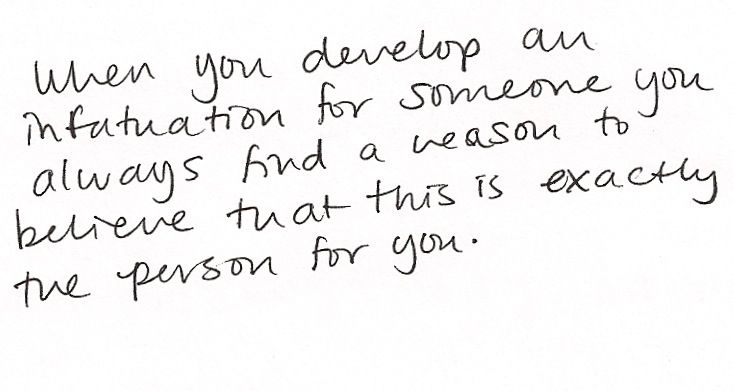 When you develop an
infatuation for someone you
always find a reason to
believe that this is exactly
the person for you.